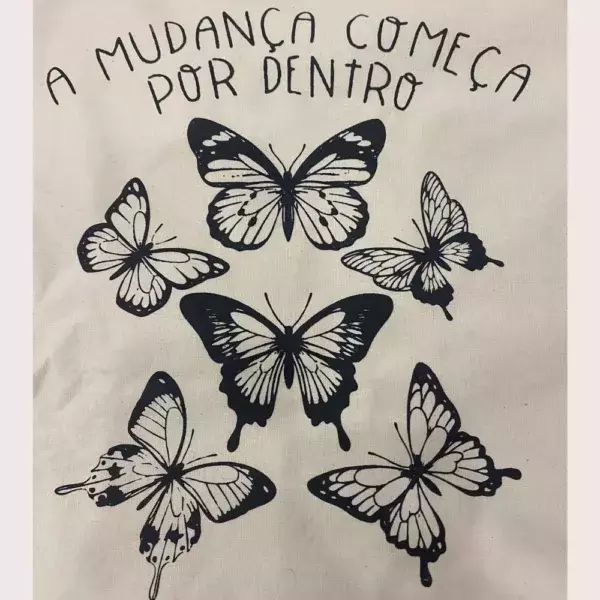 A MUDANÇA COMEÇA
POR DENTRO